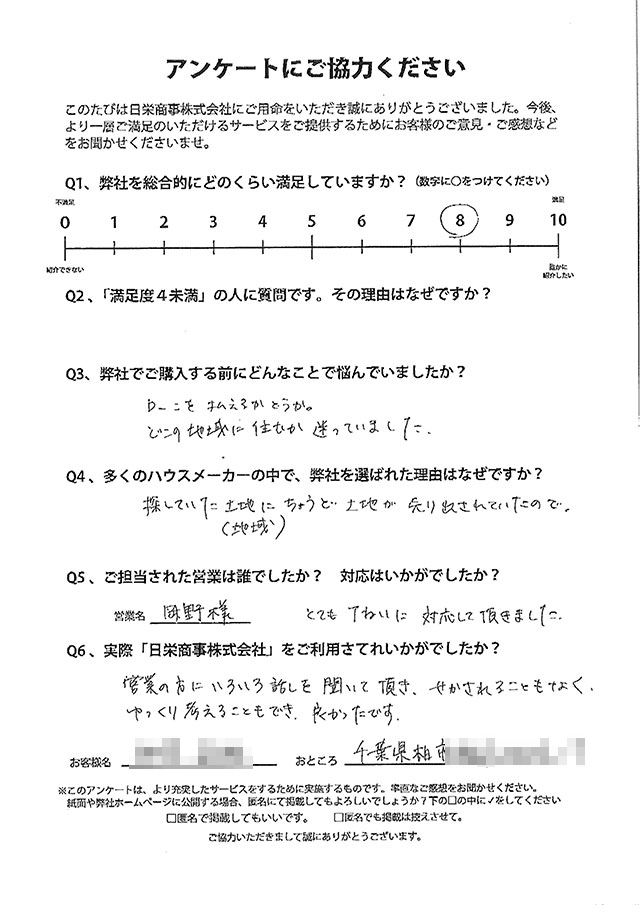 アンケートにご協力ください
このたびは日栄商事株式会社にご用命をいただき誠にありがとうございました。今後、
より一層ご満足のいただけるサービスをご提供するためにお客様のご意見・ご感想など
をお聞かせくださいませ。
Q1、弊社を総合的にどのくらい満足していますか？（数字に○をつけてください）
不満足 満足
0 1 2 3 4 5 6 7 8 9 10
紹介できない 誰かに
紹介したい
Q2、「満足度４未満」の人に質問です。その理由はなぜですか？
Q3、弊社でご購入する前にどんなことで悩んでいましたか？
ローンを払えるかどうか。
どこの地域に住むか迷っていました。
Q4、多くのハウスメーカーの中で、弊社を選ばれた理由はなぜですか？
探していた土地にちょうど土地が売り出されていたので。
（地域）
Q5、ご担当された営業は誰でしたか？ 対応はいかがでしたか？
営業名 岡野様 とても丁ねいに対応して頂きました。
Q6、実際「日栄商事株式会社」をご利用されていかがでしたか？
営業の方にいろいろ話しを聞いて頂き、せかされることもなく、
ゆっくり考えることもでき、良かったです。
お客様名 おところ 千葉県柏市
※このアンケートは、より充実したサービスをするために実施するものです。率直なご感想をお聞かせください。
紙面や弊社ホームページに公開する場合、匿名にて掲載してもよろしいでしょうか？下の□の中に✓をしてください
□匿名で掲載してもいいです。 □匿名でも掲載は控えさせて。
ご協力いただきまして誠にありがとうございます。